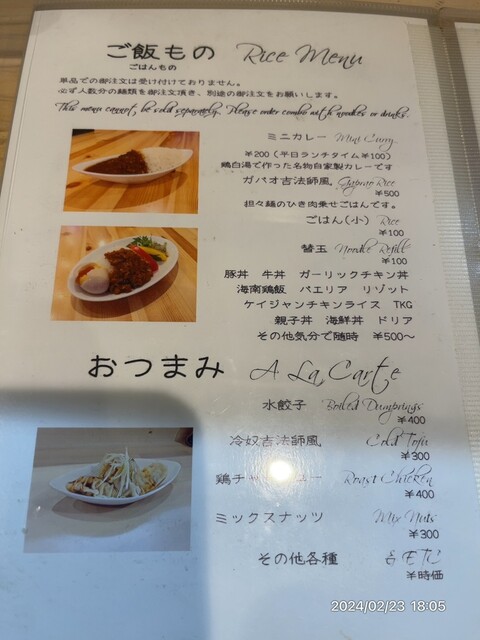 ご飯もの Rice Menu
ごはんもの
単品での御注文は受け付けておりません。
必ず人数分の麺類を御注文頂き、別途の御注文をお願いします。
This menu cannot be sold separately. Please order combo with noodles or drinks.
ミニカレー Mini Curry
¥200(平日ランチタイム¥100)
鶏白湯で作った名物自家製カレーです
ガパオ吉法師風 Gaprao Rice
¥500
担々麺のひき肉乗せごはんです。
ごはん(小) Rice
¥100
替玉 Noodle Refill
¥100
豚丼 牛丼 ガーリックチキン丼
海南鶏飯 パエリア リゾット
ケイジャンチキンライス TKG
親子丼 海鮮丼 ドリア
その他気分で随時 ¥500~
おつまみ A La Carte
水餃子 Boiled Dumprings
¥400
冷奴吉法師風 Cold Tofu
¥300
鶏チャーシュー Roast Chicken
¥400
ミックスナッツ Mix Nuts
¥300
その他各種 & ETC
¥時価
2024/02/23 18:05